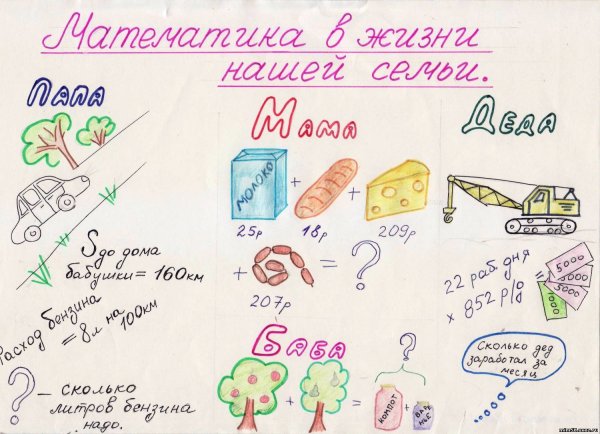 Математика в жизни
нашей семьи.
Папа
S до дома
бабушки = 160км
Расход бензина
= 8л на 100км
? – сколько
литров бензина
надо.
Мама
МОЛОКО
+ +
25р 18р 209р
+ = ?
207р
Баба
?
+ =
КОМПОТ
ВАРЕ
НЬЕ
Деда
22 раб. дня
× 852 р/д
=
5000
5000
1000
Сколько дед
заработал за
месяц